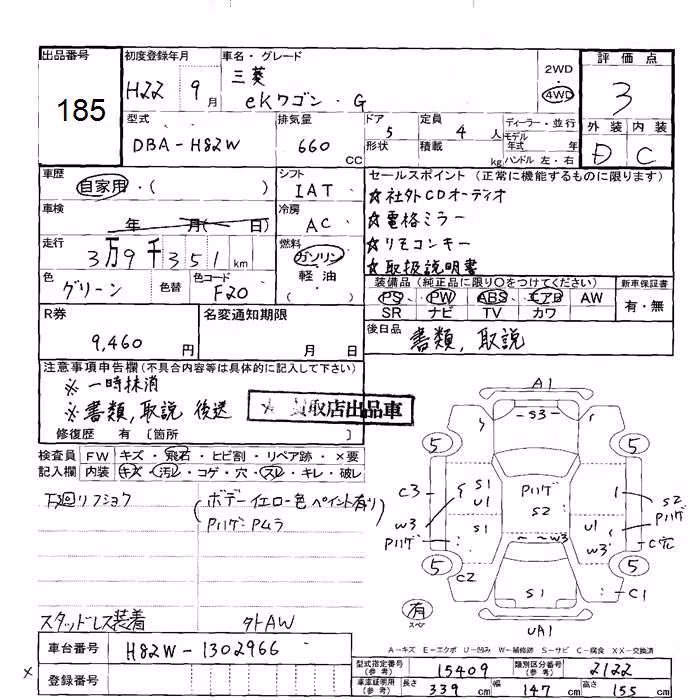 出品番号
185
初度登録年月
H22 9月
車名・グレード
三菱
eKワゴン・G
2WD
・
4WD
評価点
3
外装 内装
D C
型式
DBA-H82W
排気量
660 CC
ドア 5
形状
定員 4 人
積載 kg
ディーラー・並行
モデル年式 年
ハンドル 左・右
車歴
自家用・( )
シフト
IAT
車検
年 月( 日)
冷房
AC
走行
3万9千351km
燃料
ガソリン
軽油
( )
色
グリーン
色替
色コード
F20
セールスポイント(正常に機能するものに限ります)
☆社外CDオーディオ
☆電格ミラー
☆リモコンキー
☆取扱説明書
装備品(純正品に限り○をつけてください)
PS PW ABS エアB AW
SR ナビ TV カワ
新車保証書
有・無
R券
9,460 円
名変通知期限
月 日
後日品
書類,取説
注意事項申告欄(不具合内容等は具体的に記入して下さい)
※一時抹消
※書類,取説 後送
☆ 買取店出品車
修復歴 有 [箇所 ]
検査員記入欄
FW キズ・飛石・ヒビ割・リペア跡・×要
内装 キズ・汚レ・コゲ・穴・スレ・キレ・破レ
下廻リフショク
(ボデーイエロー色ペイント有り)
Pハゲ Pムラ
スタッドレス装着
外AW
A1
S3
5
5
C3
S1
U1
Pハゲ
S2
1
S2
Pハゲ
W3
Pハゲ
S1
U1
W3
W3
C穴
5
5
C2
S1
C1
有
スペア
UA1
A-キズ E-エクボ U-凹み W-補修跡 S-サビ C-腐食 XX-交換済
車台番号
H82W-1302966
× 登録番号
型式指定番号(参考) 15409
類別区分番号(参考) 2122
車庫証明用(参考) 長さ 339 cm 幅 147 cm 高さ 155 cm